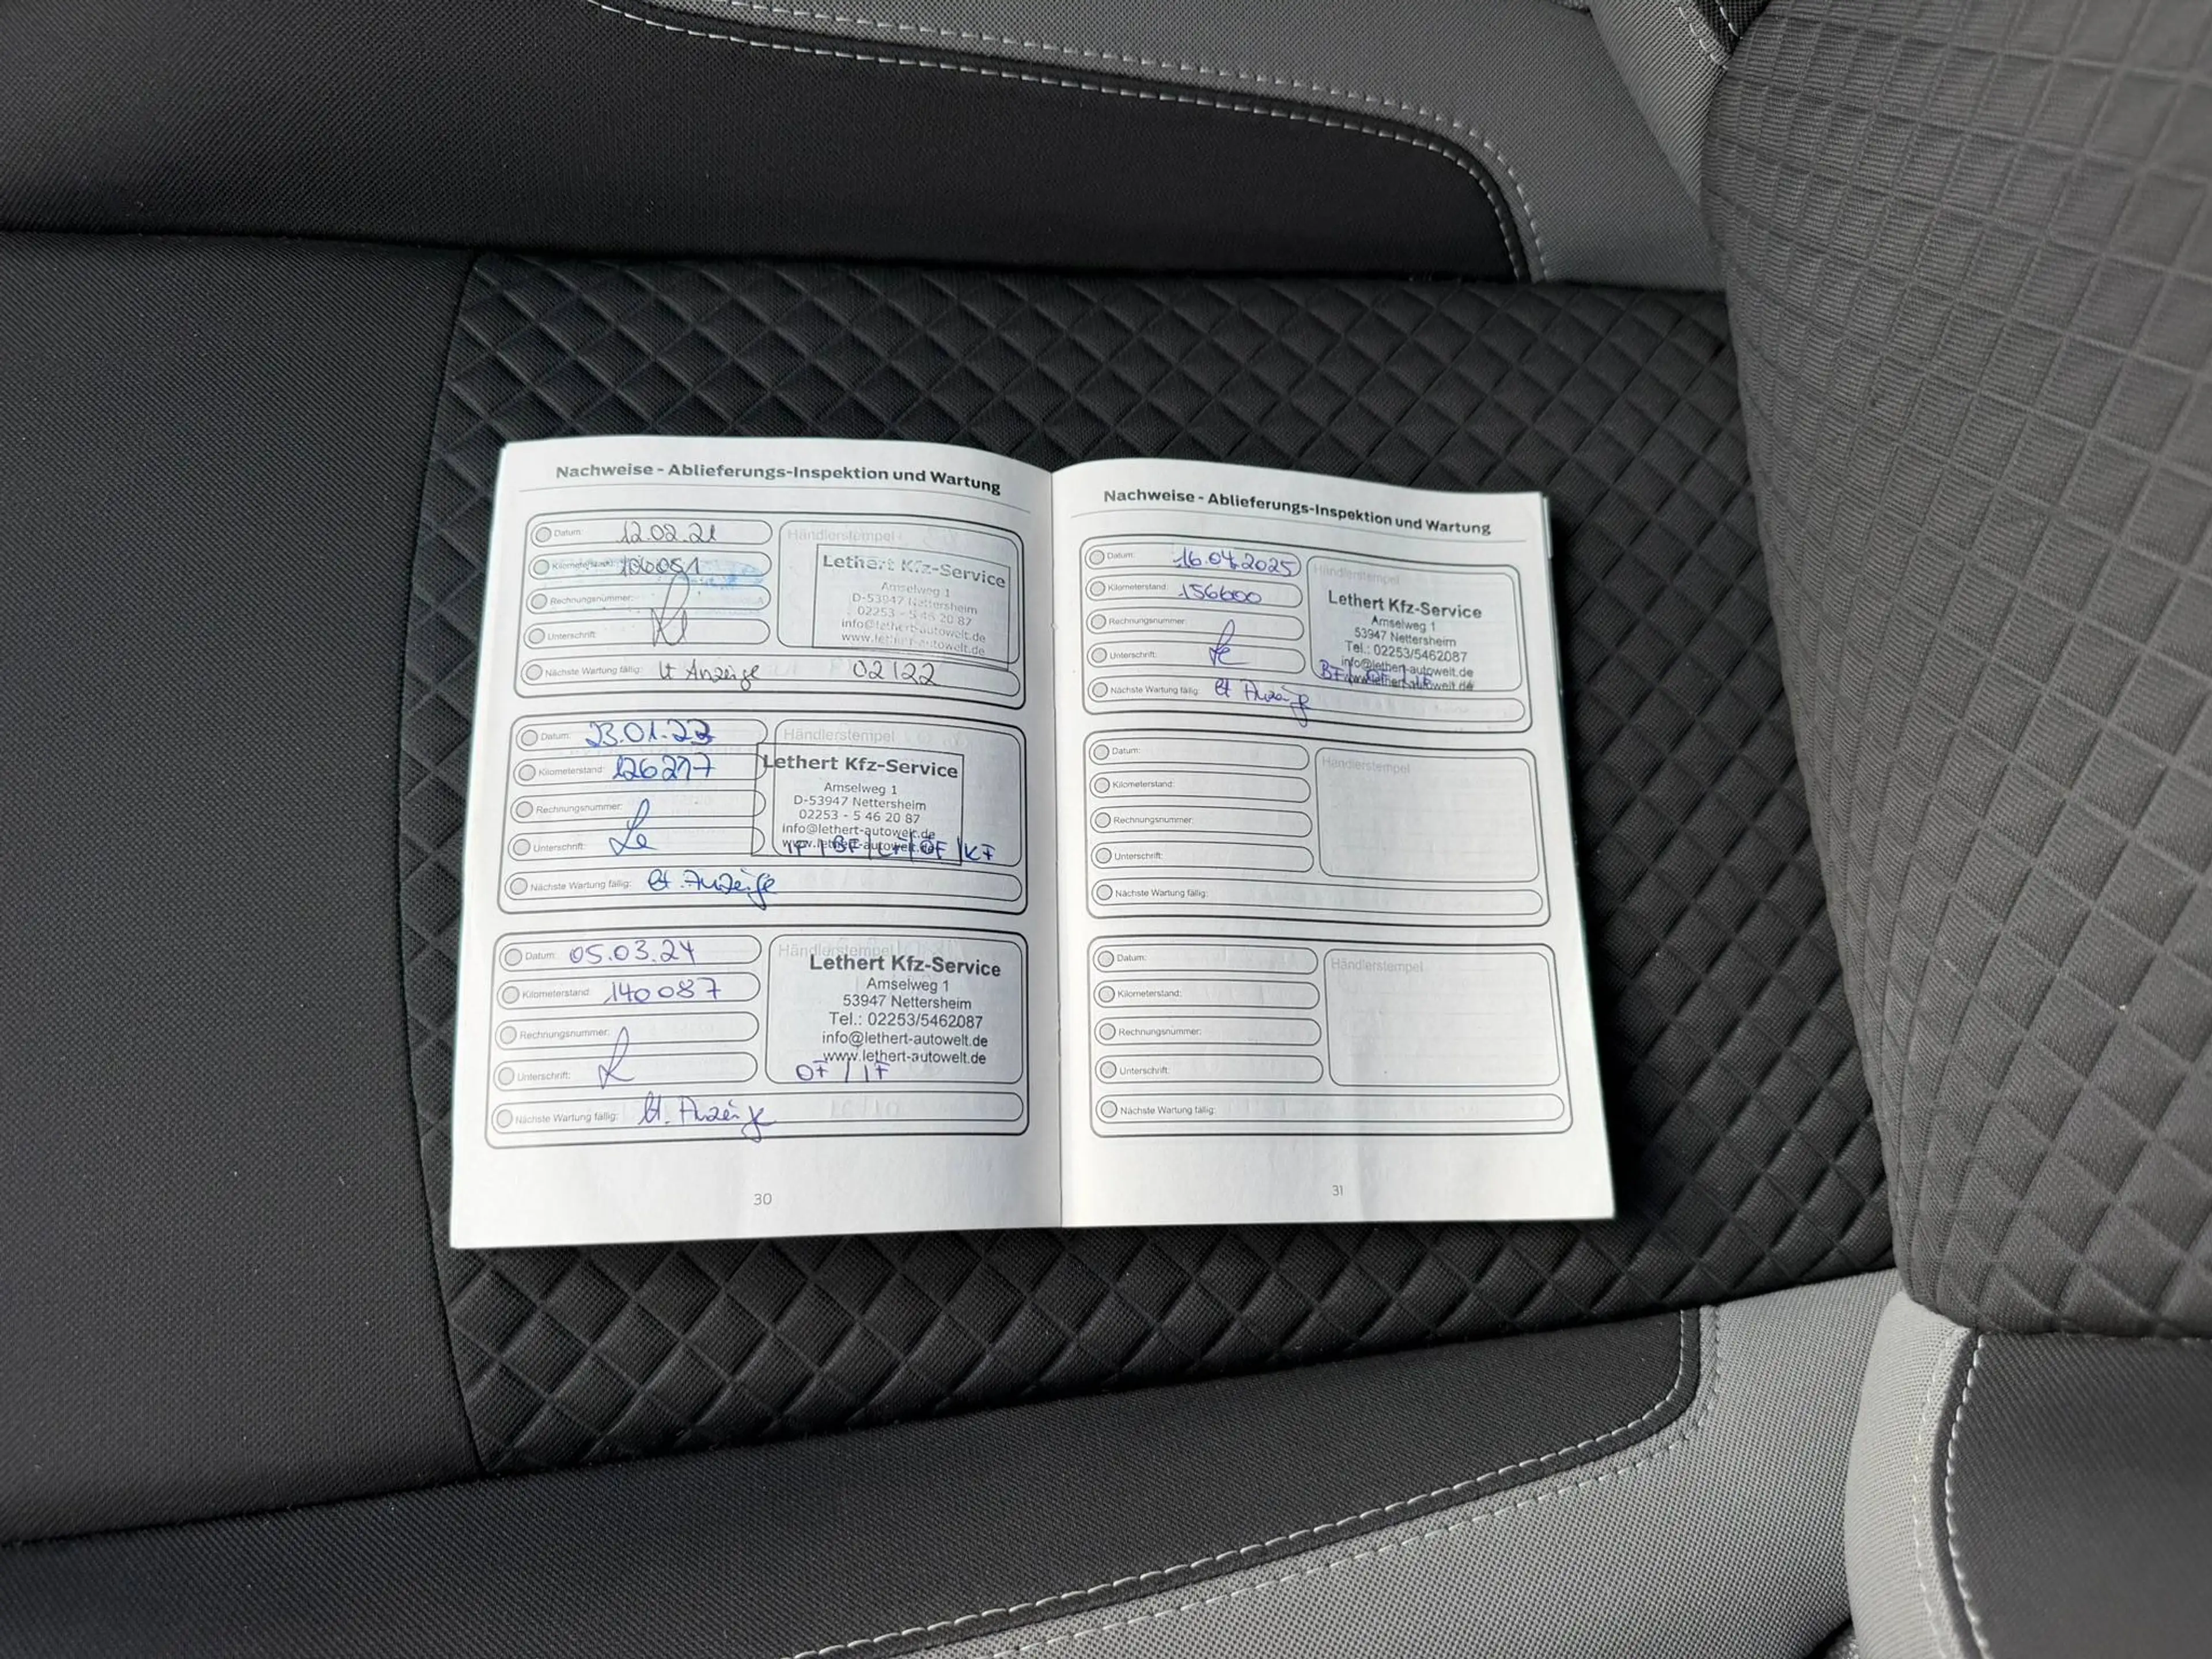 Nachweise - Ablieferungs-Inspektion und Wartung
Datum: 12.02.21
Händlerstempel
Kilometerstand: 106051
Lethert Kfz-Service
Amselweg 1
D-53947 Nettersheim
02253 - 5 46 20 87
info@lethert-autowelt.de
www.lethert-autowelt.de
Rechnungsnummer:
Unterschrift:
Nächste Wartung fällig: lt Anzeige 02/22
Datum: 23.01.23
Händlerstempel
Kilometerstand: 126277
Lethert Kfz-Service
Amselweg 1
D-53947 Nettersheim
02253 - 5 46 20 87
info@lethert-autowelt.de
www.lethert-autowelt.de
IF | BF | LF | ÖF | KF
Rechnungsnummer:
Unterschrift: Le
Nächste Wartung fällig: lt. Anzeige
Datum: 05.03.24
Händlerstempel
Kilometerstand: 140087
Lethert Kfz-Service
Amselweg 1
53947 Nettersheim
Tel.: 02253/5462087
info@lethert-autowelt.de
www.lethert-autowelt.de
OF | IF
Rechnungsnummer:
Unterschrift:
Nächste Wartung fällig: lt. Anzeige
30
Nachweise - Ablieferungs-Inspektion und Wartung
Datum: 16.04.2025
Händlerstempel
Kilometerstand: 156600
Lethert Kfz-Service
Amselweg 1
53947 Nettersheim
Tel.: 02253/5462087
info@lethert-autowelt.de
www.lethert-autowelt.de
BF
Rechnungsnummer:
Unterschrift: Le
Nächste Wartung fällig: lt Anzeige
Datum:
Händlerstempel
Kilometerstand:
Rechnungsnummer:
Unterschrift:
Nächste Wartung fällig:
Datum:
Händlerstempel
Kilometerstand:
Rechnungsnummer:
Unterschrift:
Nächste Wartung fällig:
31